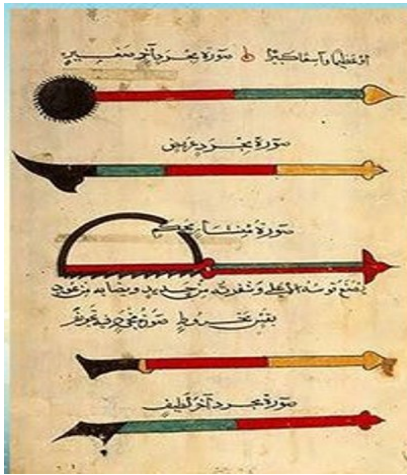 أو عظيما واسعا كبيرا صورة مجرد آخر صغير
صورة مجرد عريض
صورة منشار محكم
يصنع قوسه الأعلى وشفرته من حديد ونصابه من عود
بقس مخروط صورة مجرد فيه تحريف
صورة مجرد آخر لطيف